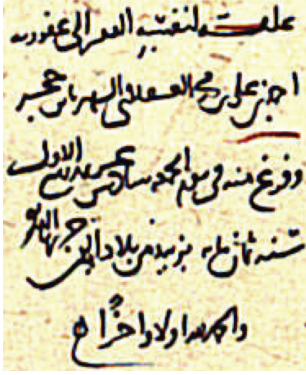 علقه لنفسه الفقير الى عفو ربه
احمد بن علي بن محمد العسقلاني الشهير بابن حجر
وفرغ منه في يوم الجمعة سادس عشر ربيع الاول
سنة ثمان مايه بزبيد من بلاد اليمن
والحمد لله اولا واخرا